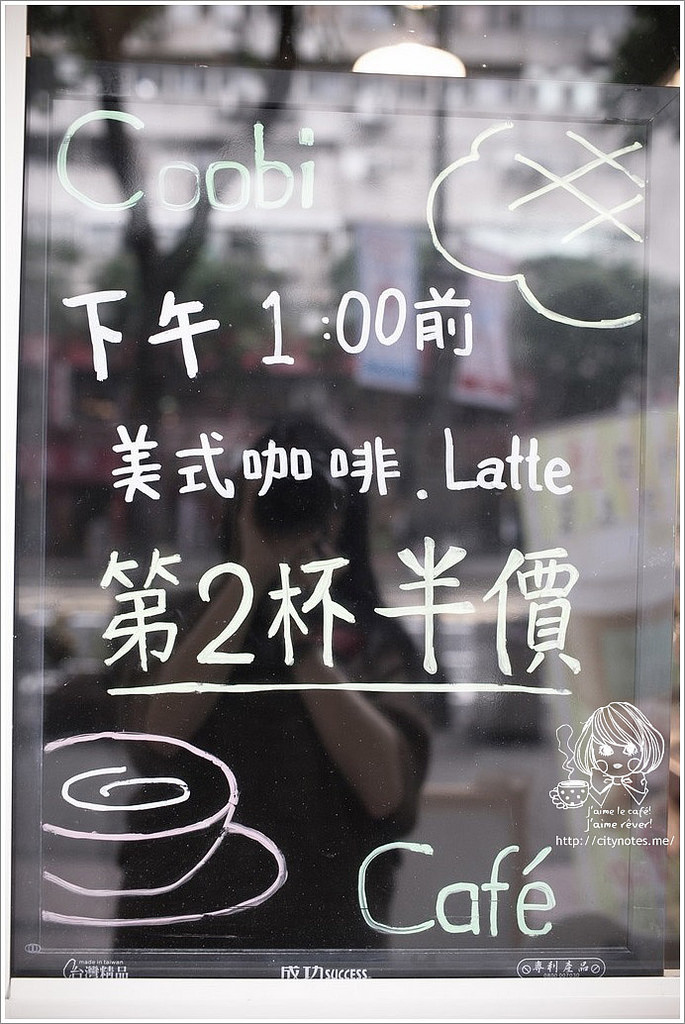 Coobi
下午 1:00前
美式咖啡.Latte
第2杯半價
j'aime le café!
j'aime rêver!
http://citynotes.me/
Café
made in taiwan
台灣精品
成功SUCCESS
專利產品